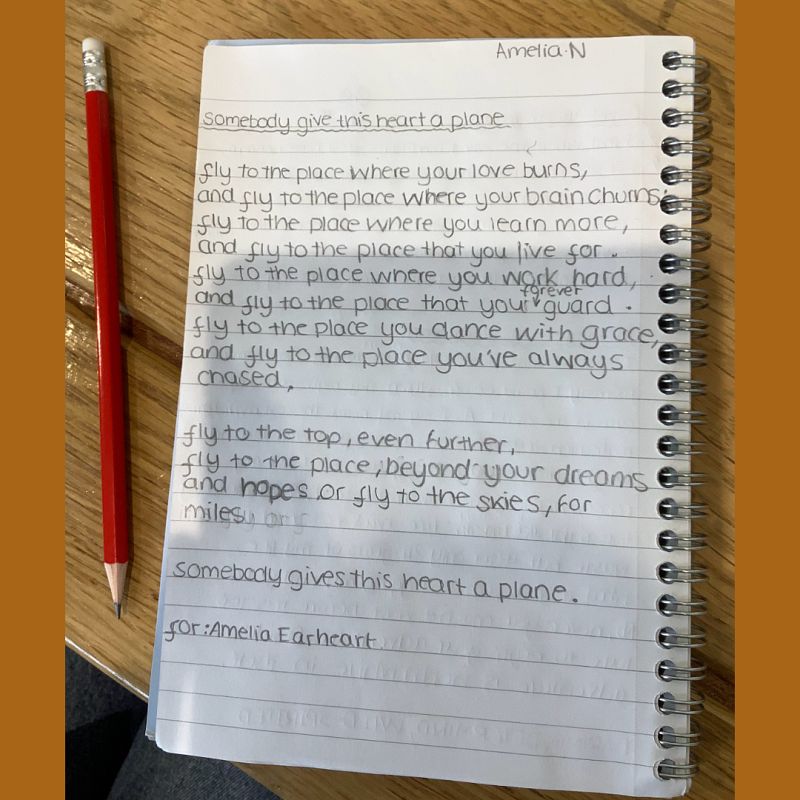 Amelia.N
somebody give this heart a plane
fly to the place where your love burns,
and fly to the place where your brain churns.
fly to the place where you learn more,
and fly to the place that you live for.
fly to the place where you work hard,
forever
and fly to the place that your guard.
fly to the place you dance with grace,
and fly to the place you've always
chased,
fly to the top, even further,
fly to the place, beyond your dreams
and hopes or fly to the skies, for
miles
somebody gives this heart a plane.
for: Amelia Earheart